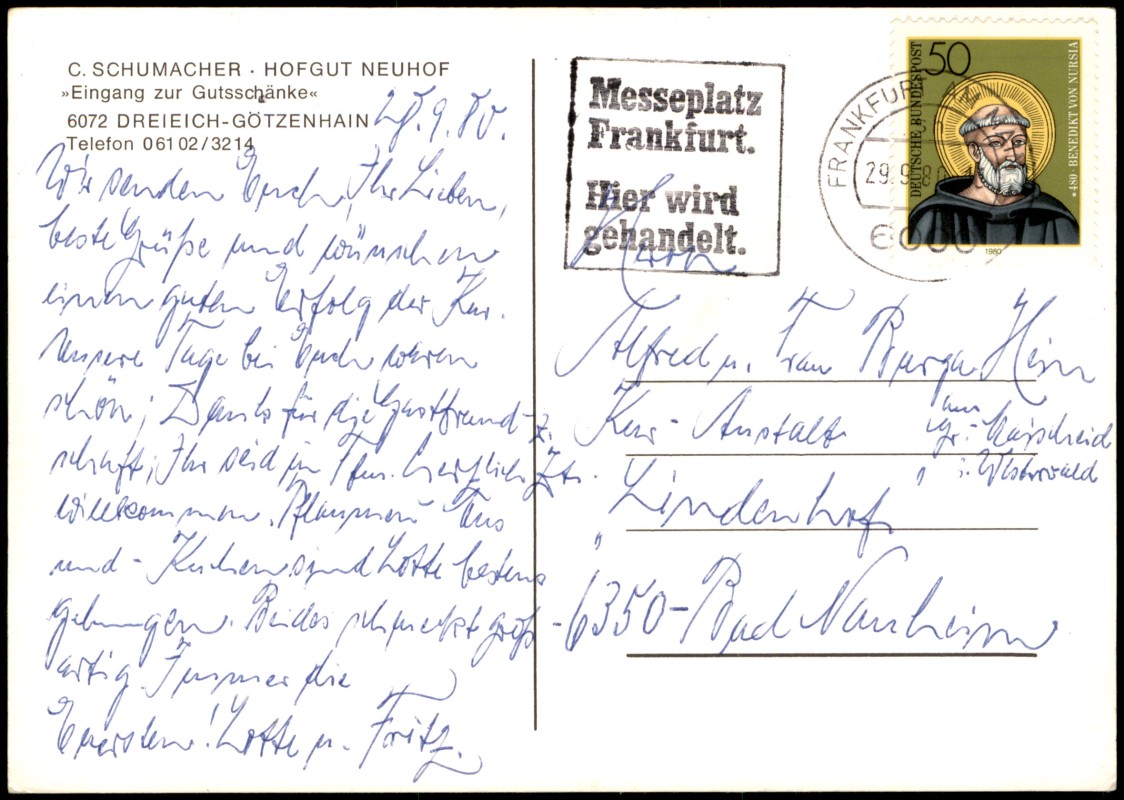 C. SCHUMACHER · HOFGUT NEUHOF
»Eingang zur Gutsschänke«
6072 DREIEICH-GÖTZENHAIN
Telefon 06102/3214
28.9.80.
Wir senden Euch, Ihr Lieben,
beste Grüße und wünschen
einen guten Erfolg der Kur.
Unsere Tage bei Euch waren
schön; Dank für die Gastfreund-
schaft; Ihr seid in herzlich
willkommen. Pflaumen
und - Kuchen sind Lotte bestens
gelungen. Beides schmeckt groß-
artig. Immer die
Euersten! Lotte u. Fritz.
Messeplatz
Frankfurt.
Hier wird
gehandelt.
FRANKFURT
29.9.80
6000
50
DEUTSCHE BUNDESPOST
*480 · BENEDIKT VON NURSIA
1980
Herrn
Alfred u. Frau Burga
z. Zt. Kur-Anstalt
"Lindenhof"
i. Westerwald
6350 - Bad Nauheim